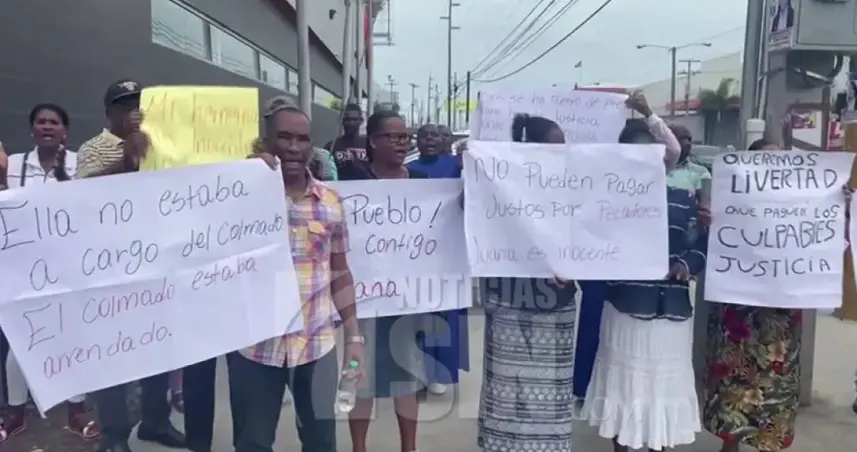 Mi hermana
inocente
Ella no estaba
a cargo del colmado.
El colmado estaba
arrendado.
Pueblo!
Contigo
ana
No Pueden Pagar
Justos Por Pecadores
Juana es inocente
Queremos
LIVERTAD
QUE PAGUEN LOS
CULPABLES
JUSTICIA
NOTICIAS
SIN
.com